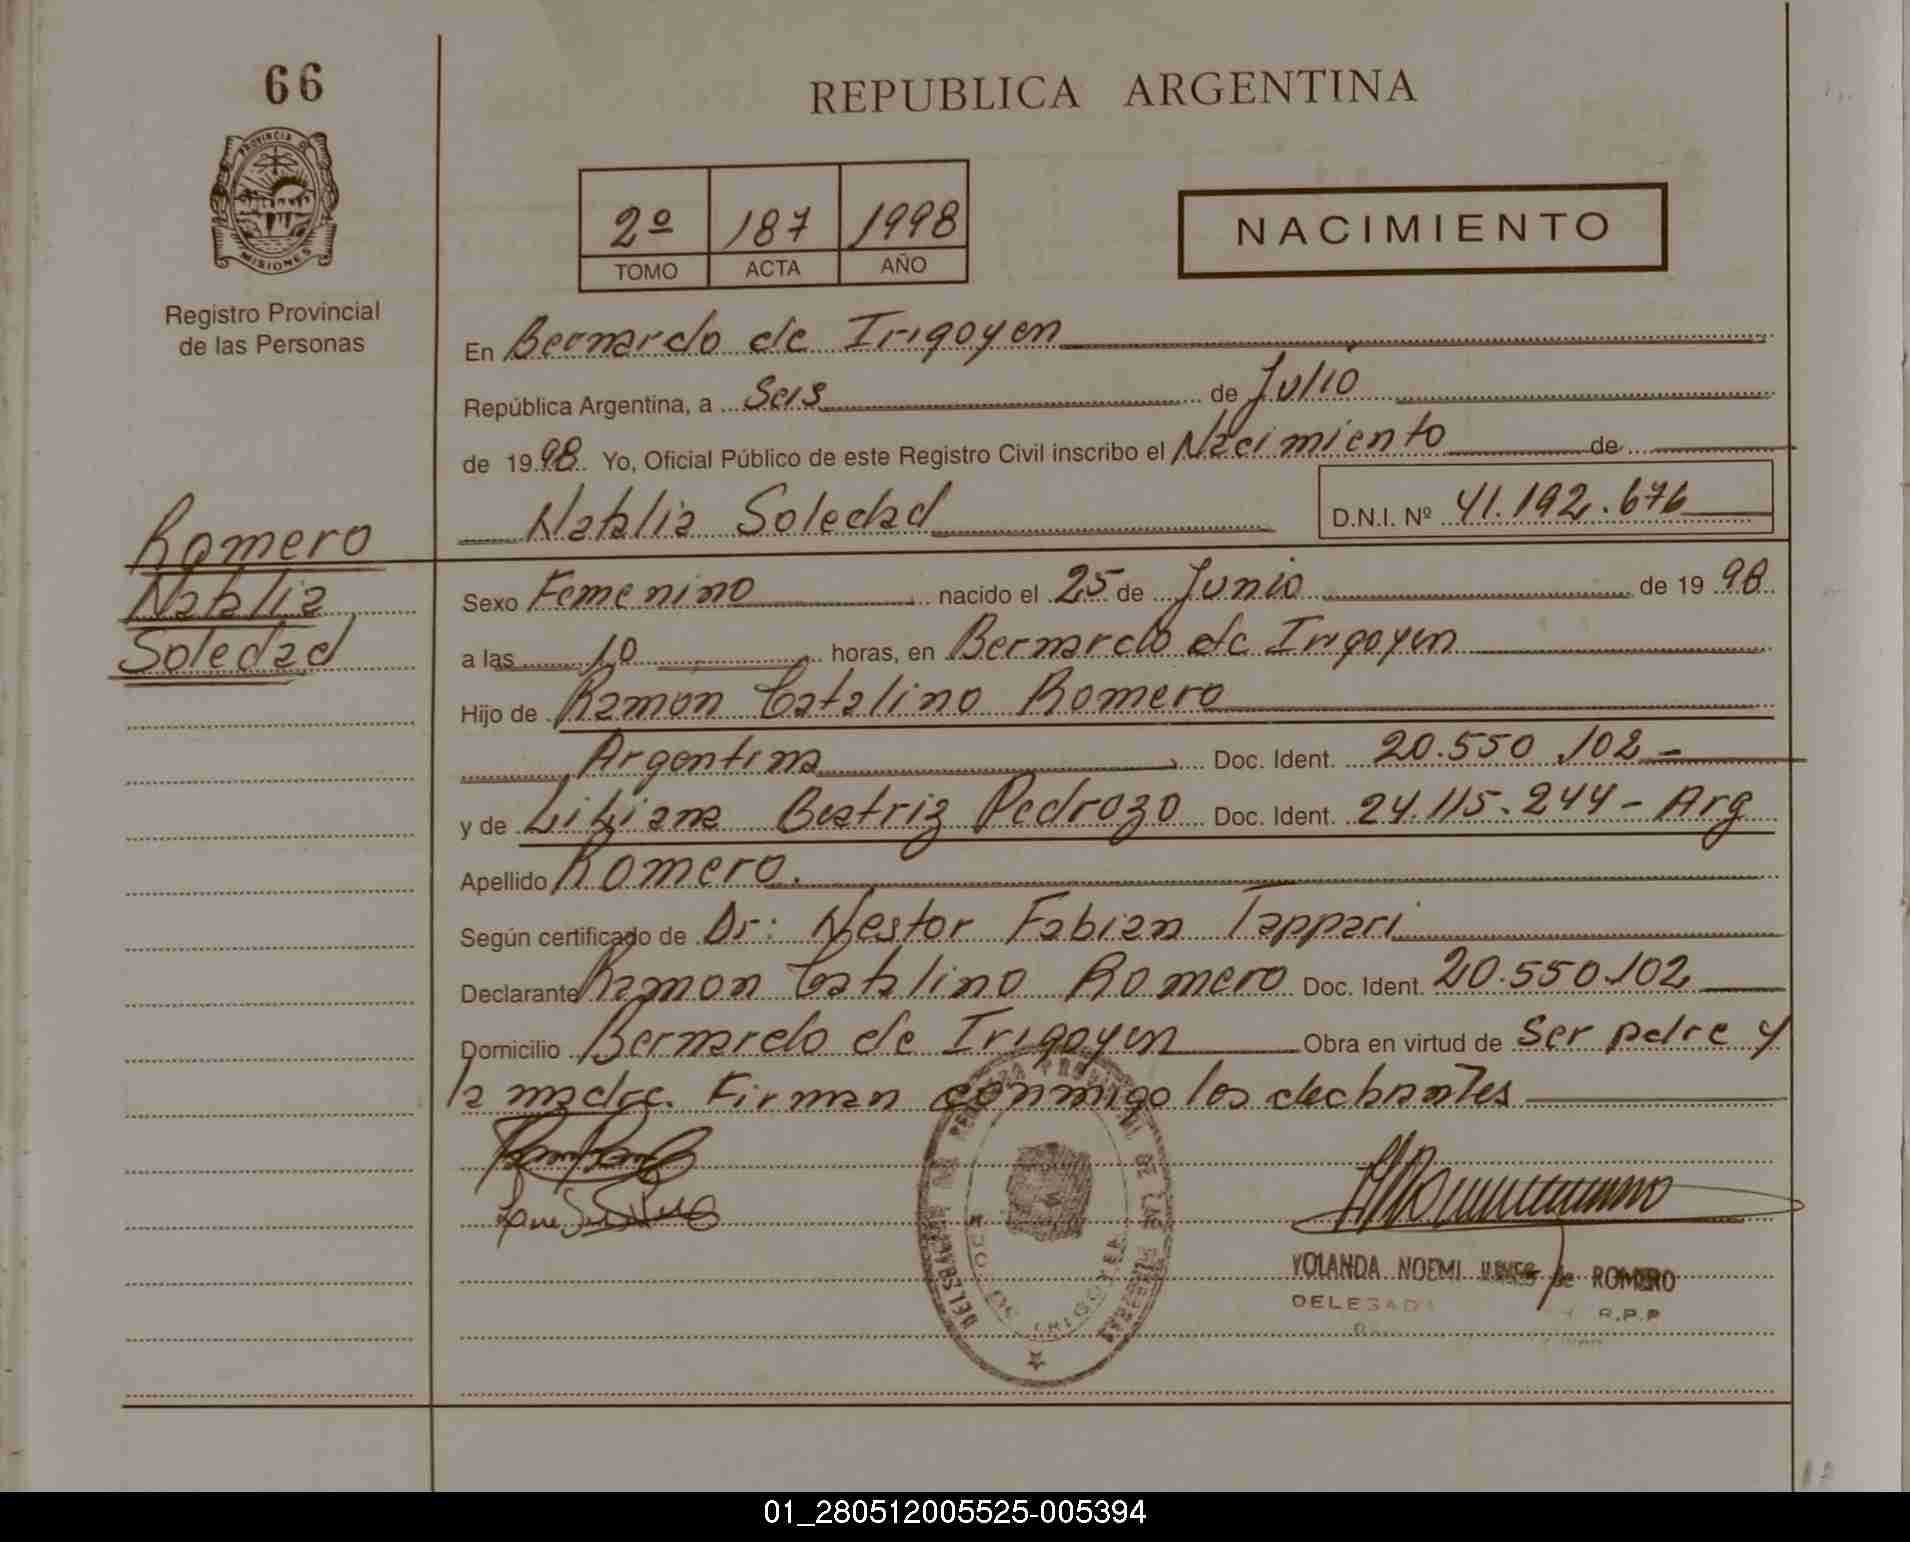 66
REPUBLICA ARGENTINA
PROVINCIA DE
MISIONES
Registro Provincial
de las Personas
2º 187 1998
TOMO ACTA AÑO
NACIMIENTO
En Bernardo de Irigoyen
República Argentina, a Seis de Julio
de 1998 Yo, Oficial Público de este Registro Civil inscribo el Nacimiento de
Natalia Soledad
D.N.I. Nº 41.192.676
Romero
Natalia
Soledad
Sexo Femenino nacido el 25 de Junio de 1998
a las 10 horas, en Bernardo de Irigoyen
Hijo de Ramon Catalino Romero
Argentina Doc. Ident. 20.550.102-
y de Liliana Beatriz Pedrozo Doc. Ident. 24.115.244 - Arg
Apellido Romero.
Según certificado de Dr: Nestor Fabian Tappari
Declarante Ramon Catalino Romero Doc. Ident. 20.550.102
Domicilio Bernardo de Irigoyen Obra en virtud de Ser padre y
la madre. Firman conmigo los declarantes
YOLANDA NOEMI de ROMERO
R.P.P
DE IRIGOYEN
01_280512005525-005394